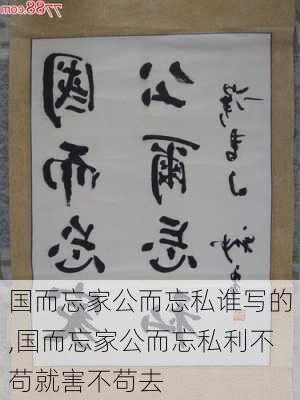 國而忘家
公爾忘私
国而忘家公而忘私谁写的
,国而忘家公而忘私利不
苟就害不苟去